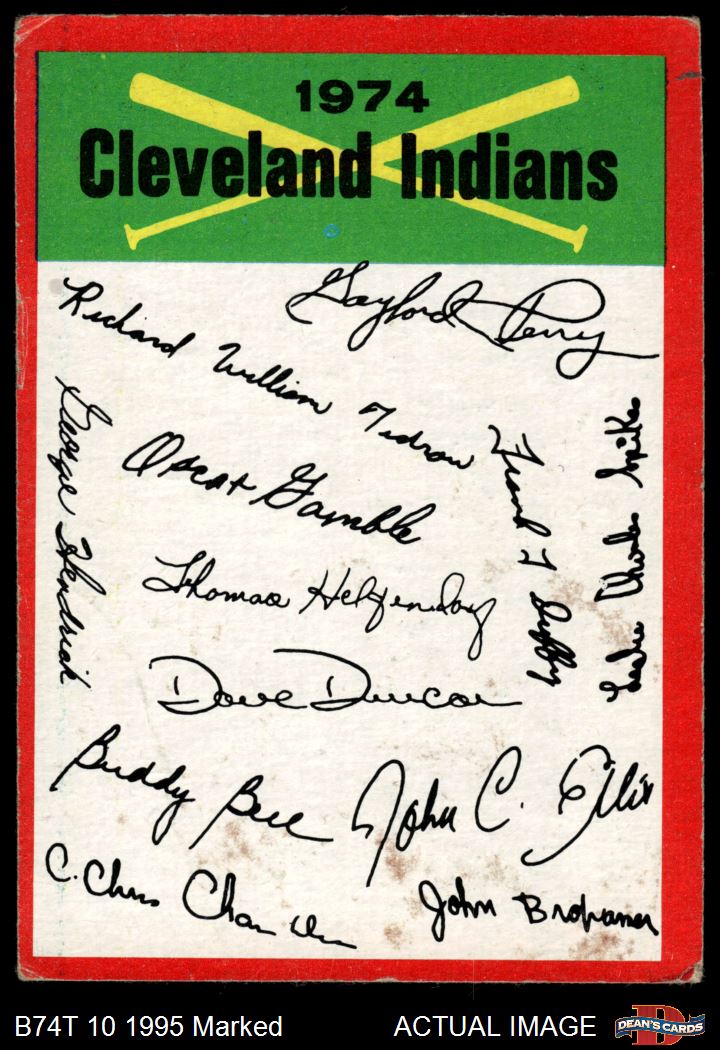 1974
Cleveland Indians
Gaylord Perry
Richard William Tidrow
George Hendrick
Oscar Gamble
Frank T Duffy
Leslie Charles Spikes
Thomas Hilgendorf
Dave Duncan
Buddy Bell
John C. Ellis
C. Chris Cham
John Brohamer
B74T 10 1995 Marked
ACTUAL IMAGE
D
DEAN'S CARDS